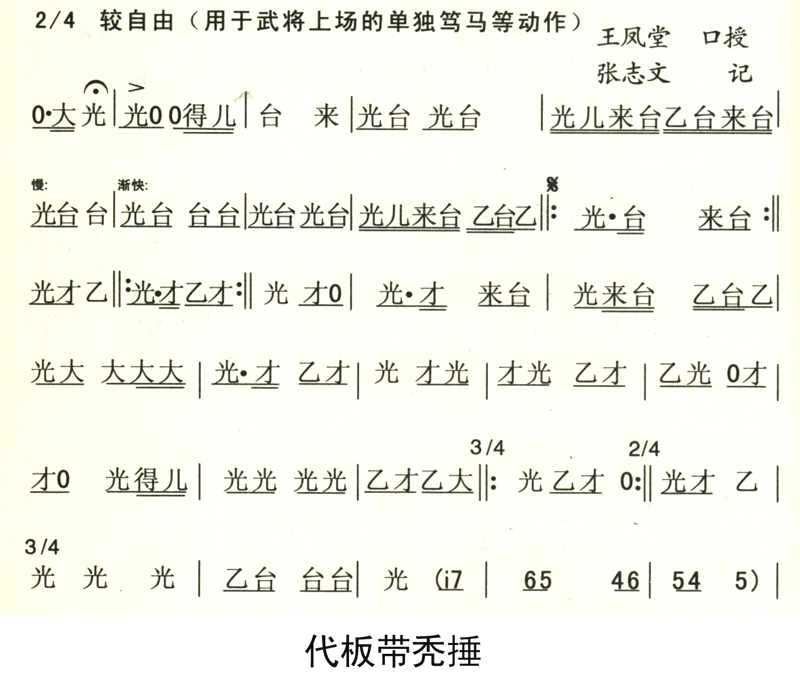 2/4 较自由（用于武将上场的单独笃马等动作）
王凤堂 口授
张志文 记
0·大光|光0 0得儿|台 来|光台 光台|光儿来台乙台来台|
慢: 渐快:
光台台|光台 台台|光台光台|光儿来台 乙台乙‖: 光·台 来台:‖
光才乙‖:光·才乙才:‖光 才0|光·才 来台|光来台 乙台乙|
光大 大大大|光·才 乙才|光 才光|才光 乙才|乙光 0才|
3/4 2/4
才0 光得儿|光光 光光|乙才乙大‖: 光乙才 0:‖光才 乙|
3/4
光 光 光|乙台 台台|光 (i7|65 46|54 5)|
代板带秃捶